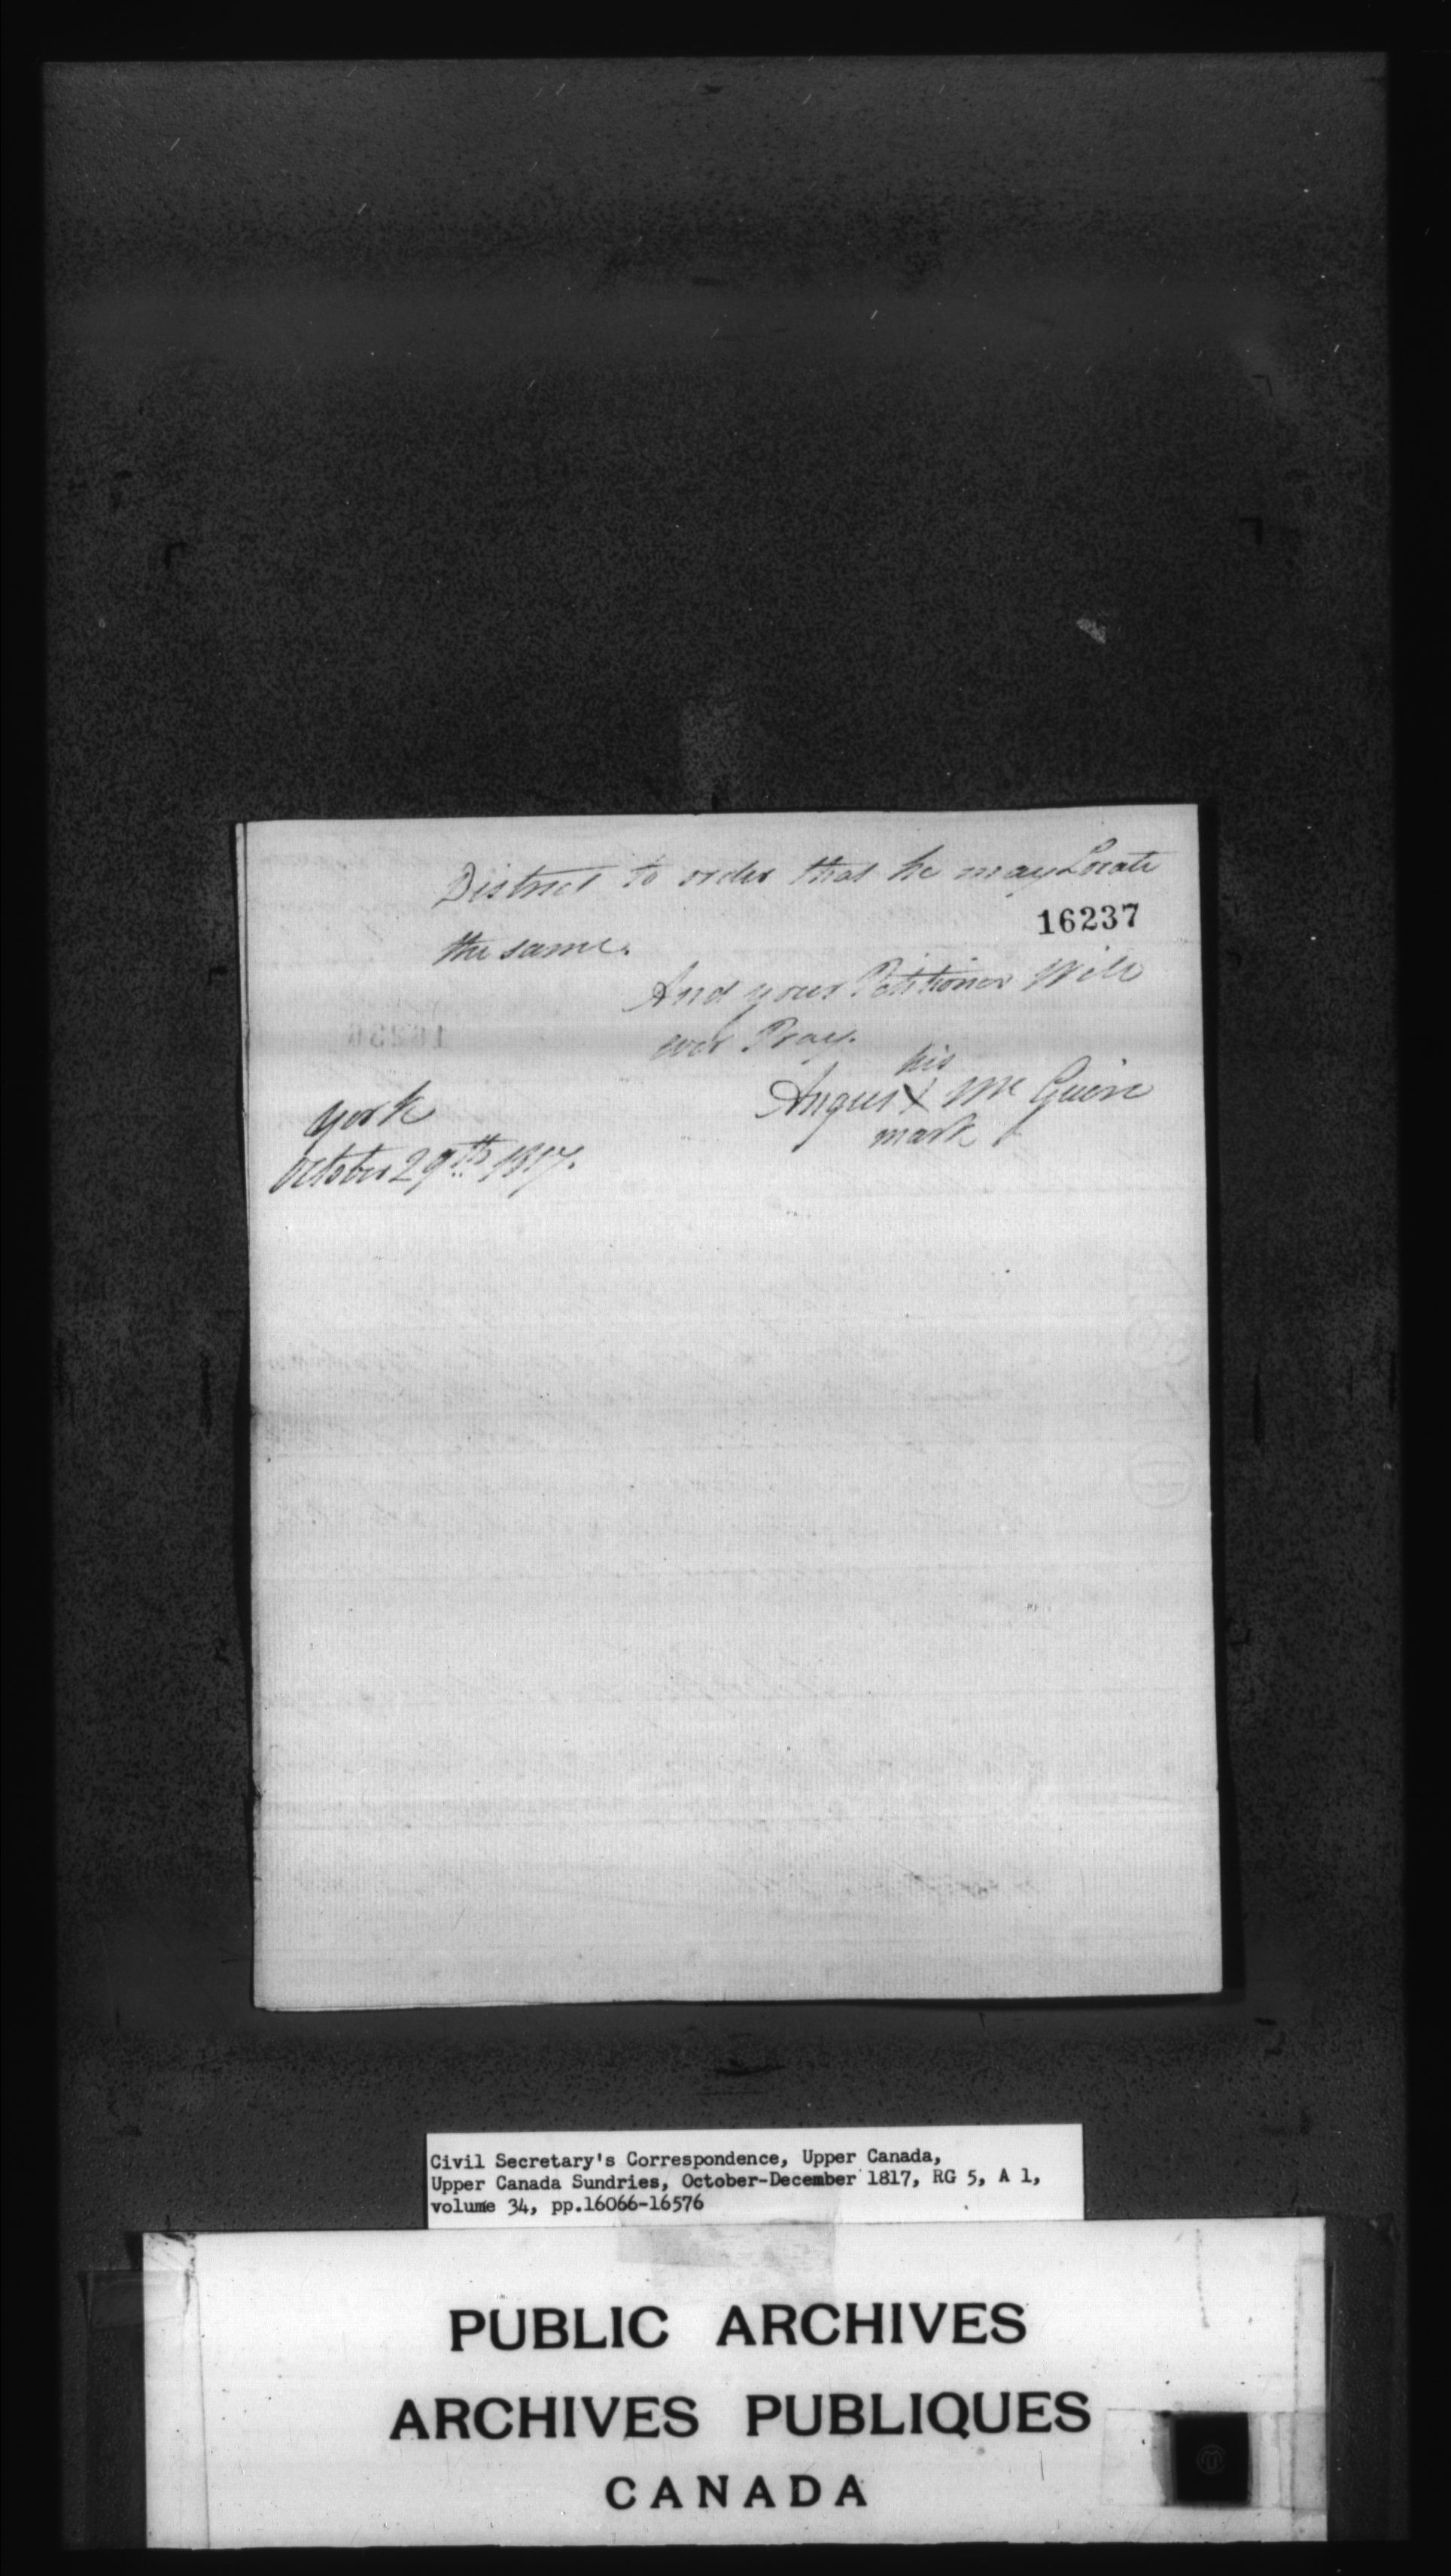 District to order that he may Locate
16237
the same.
And your Petitioner Will
ever Pray.
his
Angus X Mc Guire
mark
York
October 29th 1817.
Civil Secretary's Correspondence, Upper Canada,
Upper Canada Sundries, October-December 1817, RG 5, A 1,
volume 34, pp.16066-16576
PUBLIC ARCHIVES
ARCHIVES PUBLIQUES
CANADA